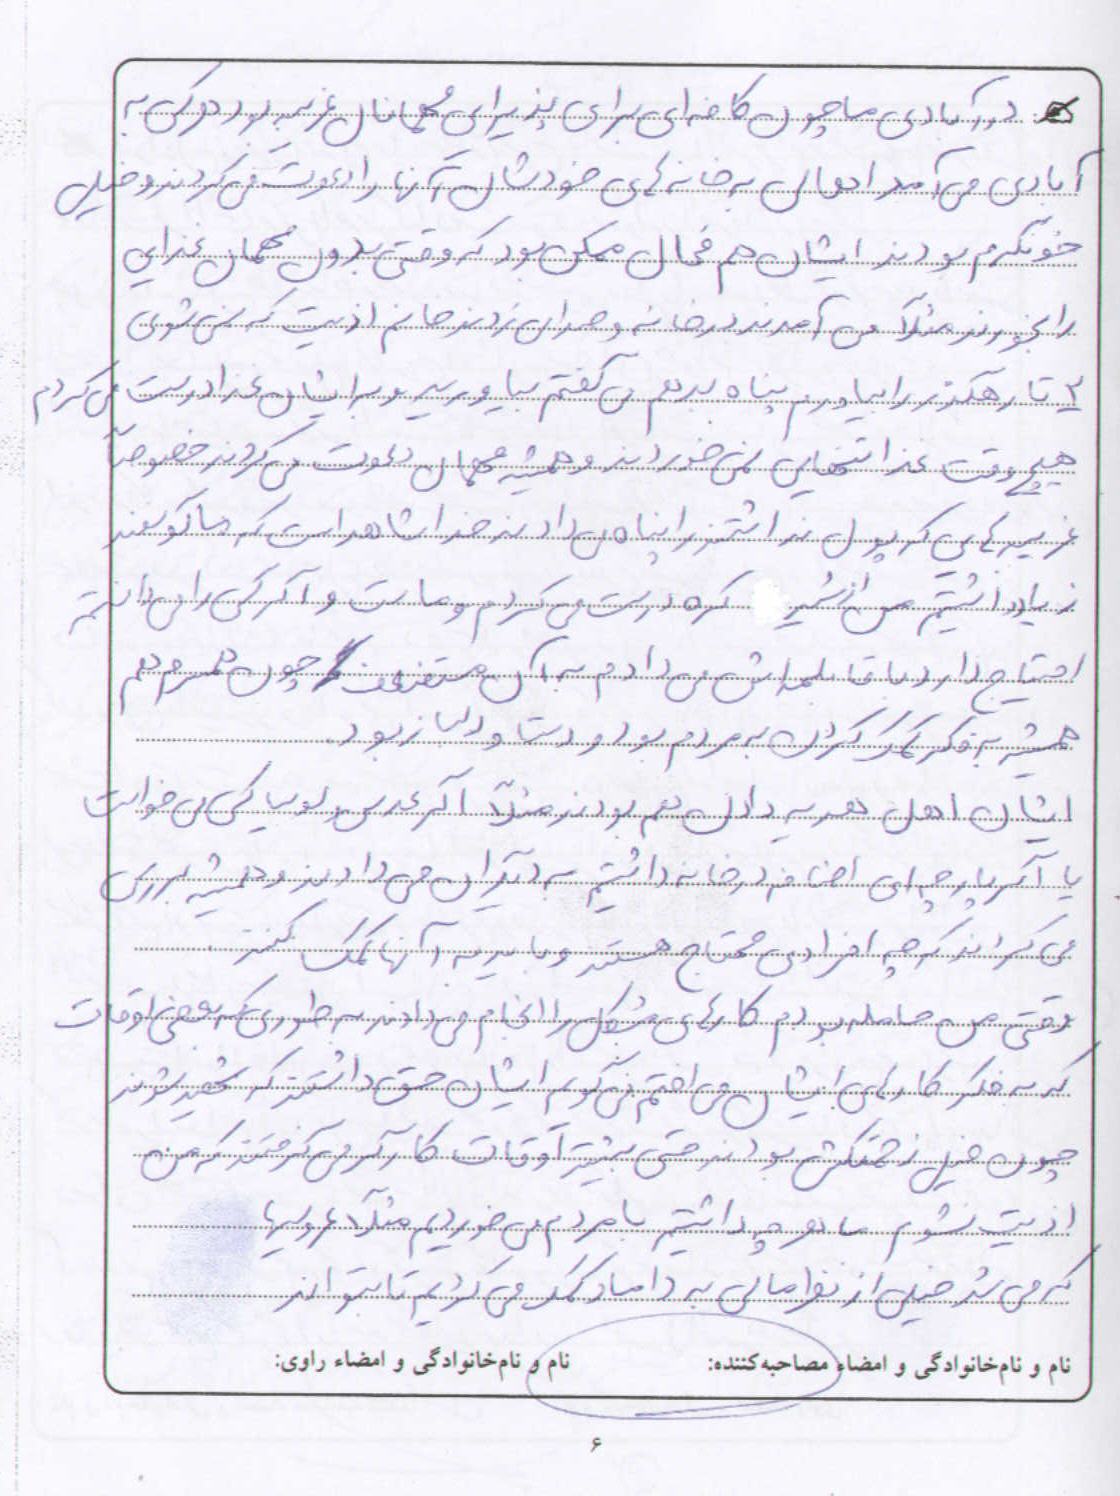 در آبادی ما چون کافه‌ای برای پذیرایی مهمانان غریبه بود هرکی به
آبادی می‌آمد اهالی به خانه‌های خودشان آنها را دعوت می‌کردند و خیلی
خونگرم بودند ایشان هم محال ممکن بود که وقتی بدون مهمان غذایی
را بخورند مثلاً می‌آمدند در خانه و صدای زدند خانم اذیت که نمی‌شوی
۲ تا رهگذر را بیاورم پناه بدهم می‌گفتم بیاورید و برایشان غذا درست می‌کردم
هیچ وقت غذا تنهایی نمی‌خوردند و همیشه مهمان دعوت می‌کردند خصوصاً
غریبه‌هایی که پول نداشتند را پناه می‌دادند خدا شاهد است که ما گوسفند
زیاد داشتیم من از شیر کره درست می‌کردم و ماست و اگر کسی را می‌دانستم
احتیاج دارد با قابلمه‌اش می‌دادم به آن مستضعف چون همسرم هم
همیشه به فکر کمک کردن به مردم بود و دست و دلباز بود.
ایشان اهل هدیه دادن هم بودند مثلاً اگر عدس و لوبیا کسی می‌خواست
یا اگر پارچه‌ای اضافه در خانه داشتیم به دیگران می‌دادند و همیشه بررسی
می‌کردند که چه افرادی محتاج هستند و باید به آنها کمک کنند.
وقتی من حامله بودم کارهای مشکل را انجام می‌دادند به طوری که بعضی اوقات
که به فکر کارهای ایشان می‌افتم می‌گویم ایشان حق داشتند که شهید شوند
چون خیلی زحمتکش بودند حتی بیشتر اوقات کارگر می‌گرفتند که من
اذیت نشوم ما هر چه داشتیم با مردم می‌خوردیم مثلاً عروسیها
که می‌شد خیلی از نظر مالی به داماد کمک می‌کردیم تا بتواند
نام و نام‌خانوادگی و امضاء مصاحبه‌کننده: نام و نام‌خانوادگی و امضاء راوی:
۶